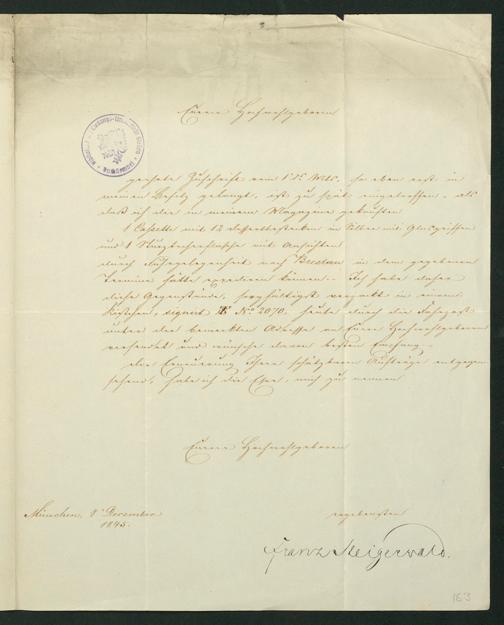 Euerer Hochwohlgeboren
geehrte Zuschrift vom 1. ds. Mts., so eben erst in
meinen Besitz gelangt, ist zu spät eingetroffen, als
daß ich die in meinem Magazine gekauften
1 Cassette mit 12 Dessertbestecken in Silber mit Glasgriffen
und 1 Sturzbecherflasche mit Ansichten
durch Fuhrgelegenheit nach Breslau in dem gegebenen
Termine hätte expediren können. Ich habe daher
diese Gegenstände, sorgfältigst verpackt in einem
Kistchen, signirt No. 2070. heute durch die Fahrpost
unter der bemerkten Adresse an Euere Hochwohlgeboren
versendet und wünsche deren besten Empfang.
Der Erneuerung Ihrer schätzbaren Aufträge entgegen
sehend, habe ich die Ehre, mich zu nennen
Euerer Hochwohlgeboren
München, 8. December
1845.
ergebensten
Franz Steigerwald.
163